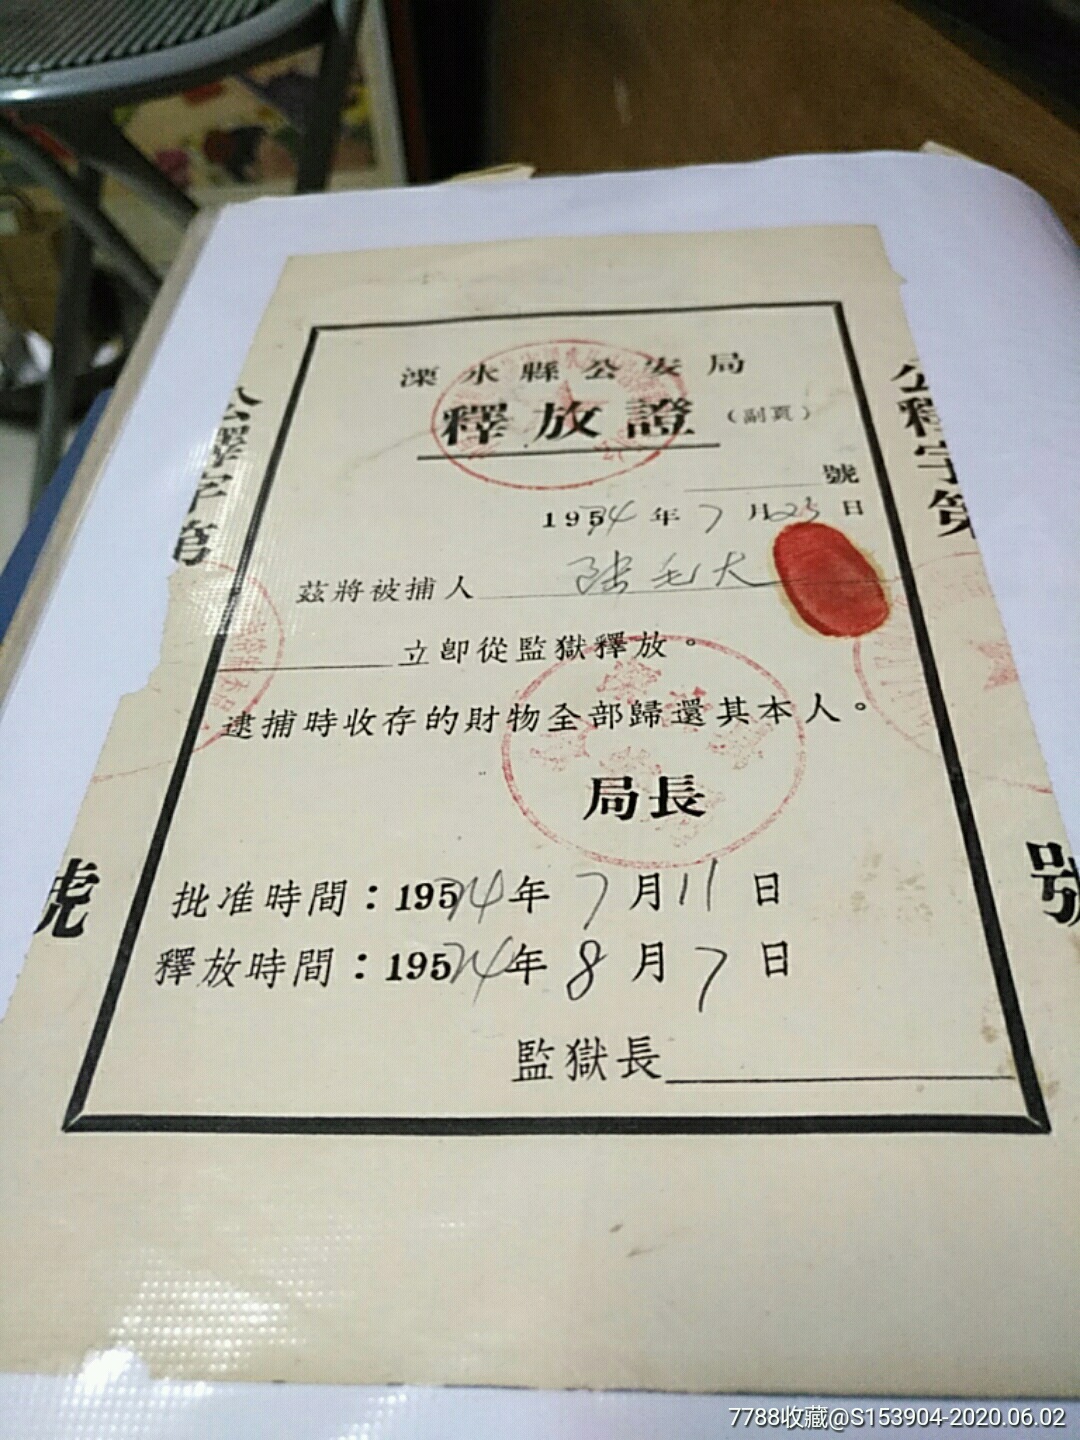 溧水縣公安局
釋放證（副頁）
號
1954年7月23日
茲將被捕人 張毛大
立即從監獄釋放。
逮捕時收存的財物全部歸還其本人。
局長
批准時間：1954年7月11日
釋放時間：1954年8月7日
監獄長
公釋字第 號
公釋字第 號
7788收藏@S153904-2020.06.02